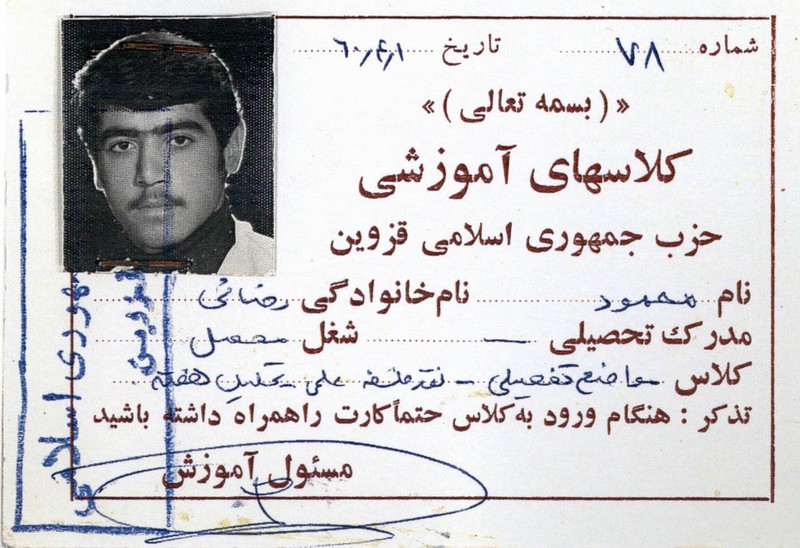 شماره ۷۸ تاریخ ۶۰/۴/۱
« ( بسمه تعالی ) »
کلاسهای آموزشی
حزب جمهوری اسلامی قزوین
نام محمود نام‌خانوادگی رضائی
مدرک تحصیلی — شغل محصل
کلاس مواضع تفصیلی - نقد فلسفه علمی - تحلیل هفته
تذکر : هنگام ورود به‌کلاس حتماً کارت راهمراه داشته باشید
مسئول آموزش
جمهوری اسلامی
قزوین